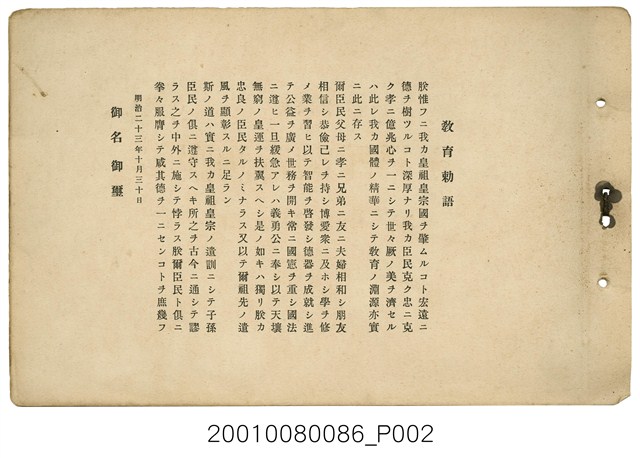 教育勅語
朕惟フニ我カ皇祖皇宗國ヲ肇ムルコト宏遠ニ
德ヲ樹ツルコト深厚ナリ我カ臣民克ク忠ニ克
ク孝ニ億兆心ヲ一ニシテ世々厥ノ美ヲ濟セル
ハ此レ我カ國體ノ精華ニシテ教育ノ淵源亦實
ニ此ニ存ス
爾臣民父母ニ孝ニ兄弟ニ友ニ夫婦相和シ朋友
相信シ恭儉己レヲ持シ博愛衆ニ及ホシ學ヲ修
メ業ヲ習ヒ以テ智能ヲ啓發シ德器ヲ成就シ進
テ公益ヲ廣メ世務ヲ開キ常ニ國憲ヲ重シ國法
ニ遵ヒ一旦緩急アレハ義勇公ニ奉シ以テ天壤
無窮ノ皇運ヲ扶翼スヘシ是ノ如キハ獨リ朕カ
忠良ノ臣民タルノミナラス又以テ爾祖先ノ遺
風ヲ顯彰スルニ足ラン
斯ノ道ハ實ニ我カ皇祖皇宗ノ遺訓ニシテ子孫
臣民ノ俱ニ遵守スヘキ所之ヲ古今ニ通シテ謬
ラス之ヲ中外ニ施シテ悖ラス朕爾臣民ト俱ニ
拳々服膺シテ咸其德ヲ一ニセンコトヲ庶幾フ
明治二十三年十月三十日
御名 御璽
20010080086_P002